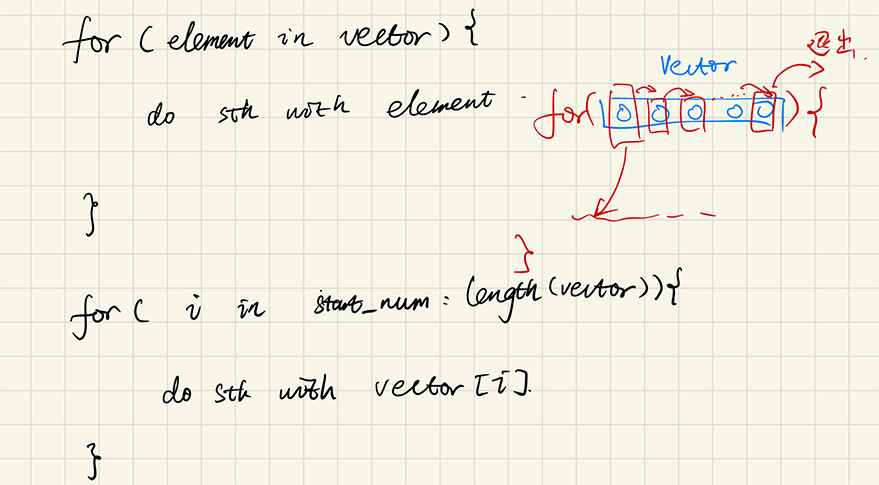 for ( element in vector) {
do sth with element
}
Vector
退出.
for( 0 0 0 ..... 0 0 ) {
}
for ( i in start_num : length(vector)) {
do sth with vector [i].
}